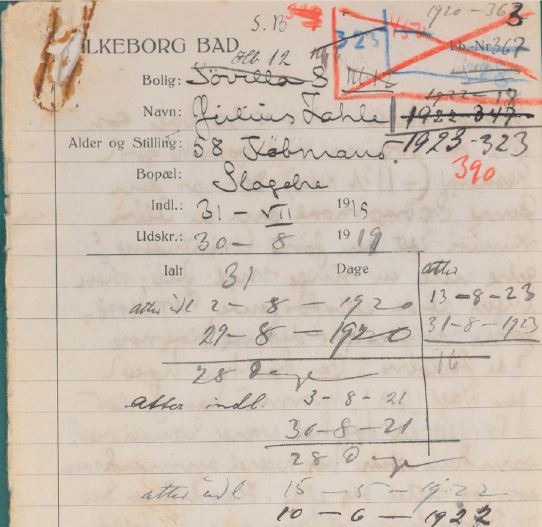 S.B 1920-363
ILKEBORG BAD 325 Lb.-Nr. 367
Hb 12
Bolig: Søvilla 8
Navn: Julius Zahle 1922-347
Alder og Stilling: 58 Købmand. 1923-323
Bopæl: Slagelse 390
Indl.: 31 - VII 1919
Udskr.: 30 - 8 1919
Ialt 31 Dage atter
atter indl 2 - 8 - 1920 13-8-23
29-8-1920 31-8-1923
28 Dage 16
atter indl. 3-8-21
30-8-21
28 Dage
atter indl 15-5-1922
10-6-1922